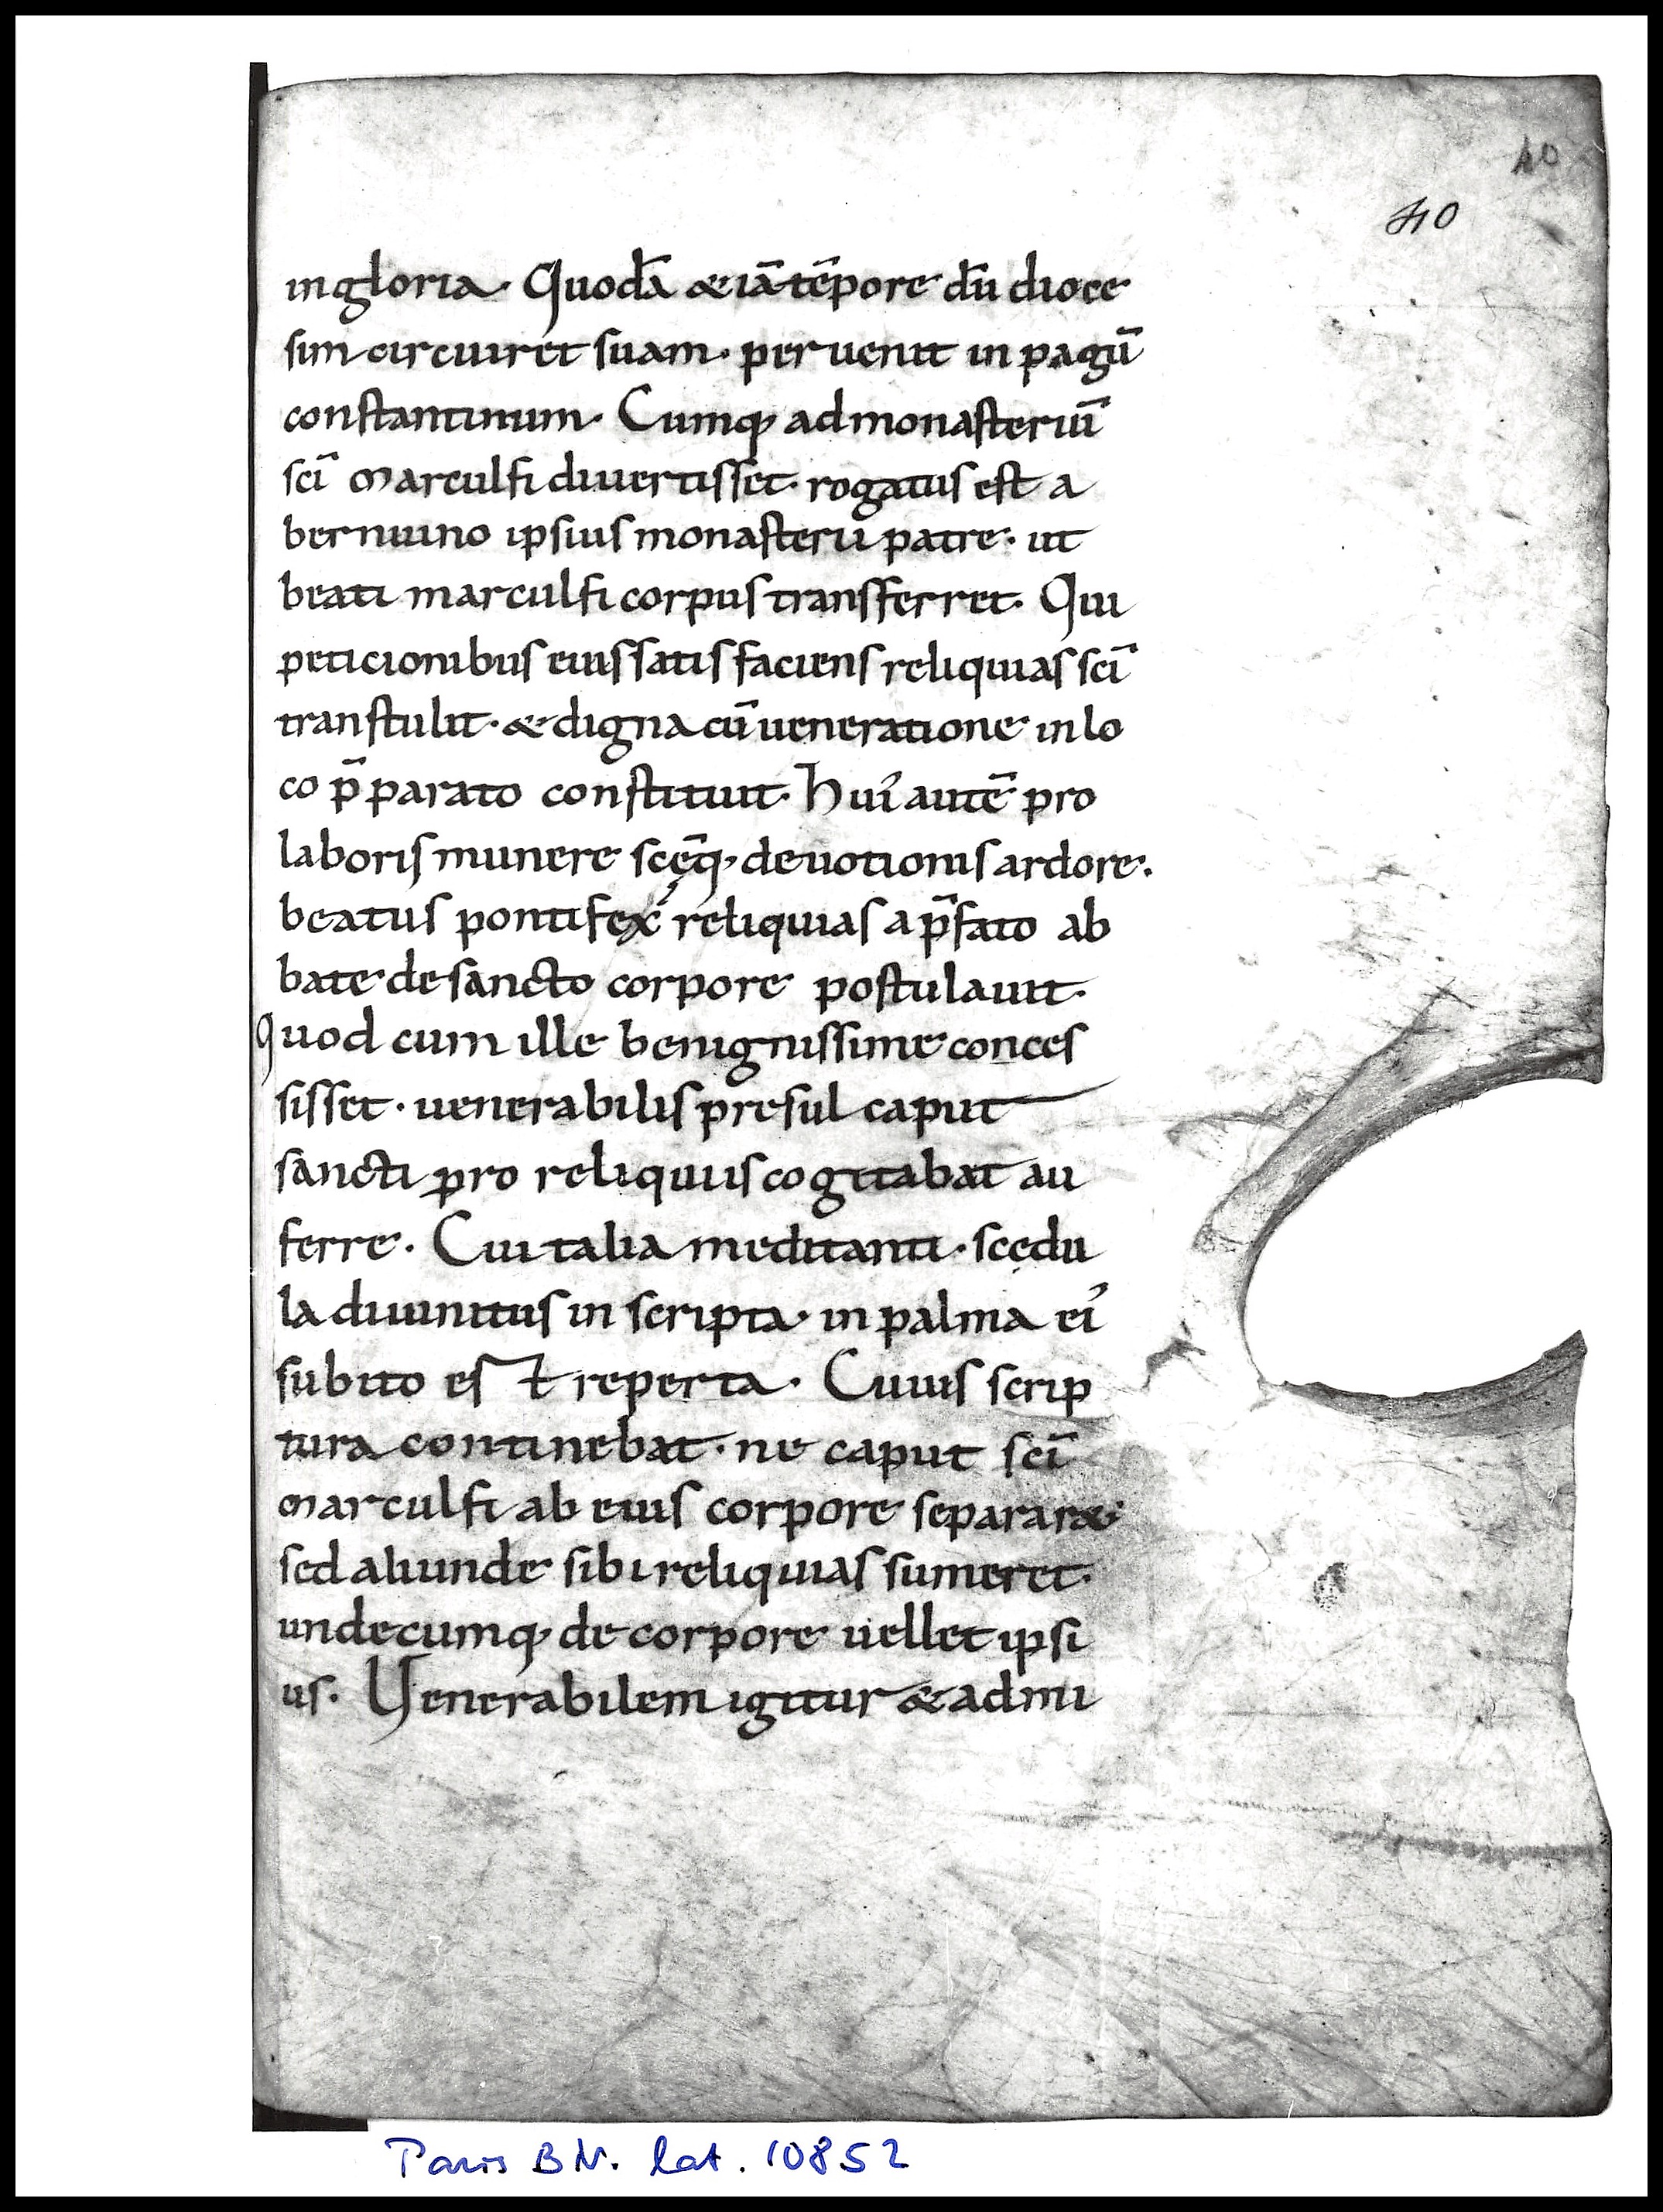 40
40
in gloria. Quodā &iā tēpore dū dioce
sim circuiret suam. peruenit in pagū
constantinum. Cumq; ad monasteriū
scī Marculfi diuertisset. rogatus est a
berniuino ipsius monasterii patre. ut
beati marculfi corpus transferret. Qui
peticionibus eius satisfaciens reliquias scī
transtulit. & digna cū ueneratione in lo
co p̄parato constituit. Hui' autē pro
laboris munere scęq; deuotionis ardore.
beatus pontifex reliquias a p̄fato ab
bate de sancto corpore postulauit.
Quod cum ille benignissime conces
sisset. uenerabilis presul caput
sancti pro reliquiis cogitabat au
ferre. Cui talia meditanti. scędu
la diuinitus inscripta. in palma ei'
subito est reperta. Cuius scrip
tura continebat. ne caput scī
Marculfi ab eius corpore separar&.
sed aliunde sibi reliquias sumeret.
undecumq; de corpore uellet ipsi
us. Uenerabilem igitur & admi
Paris BN. lat. 10852